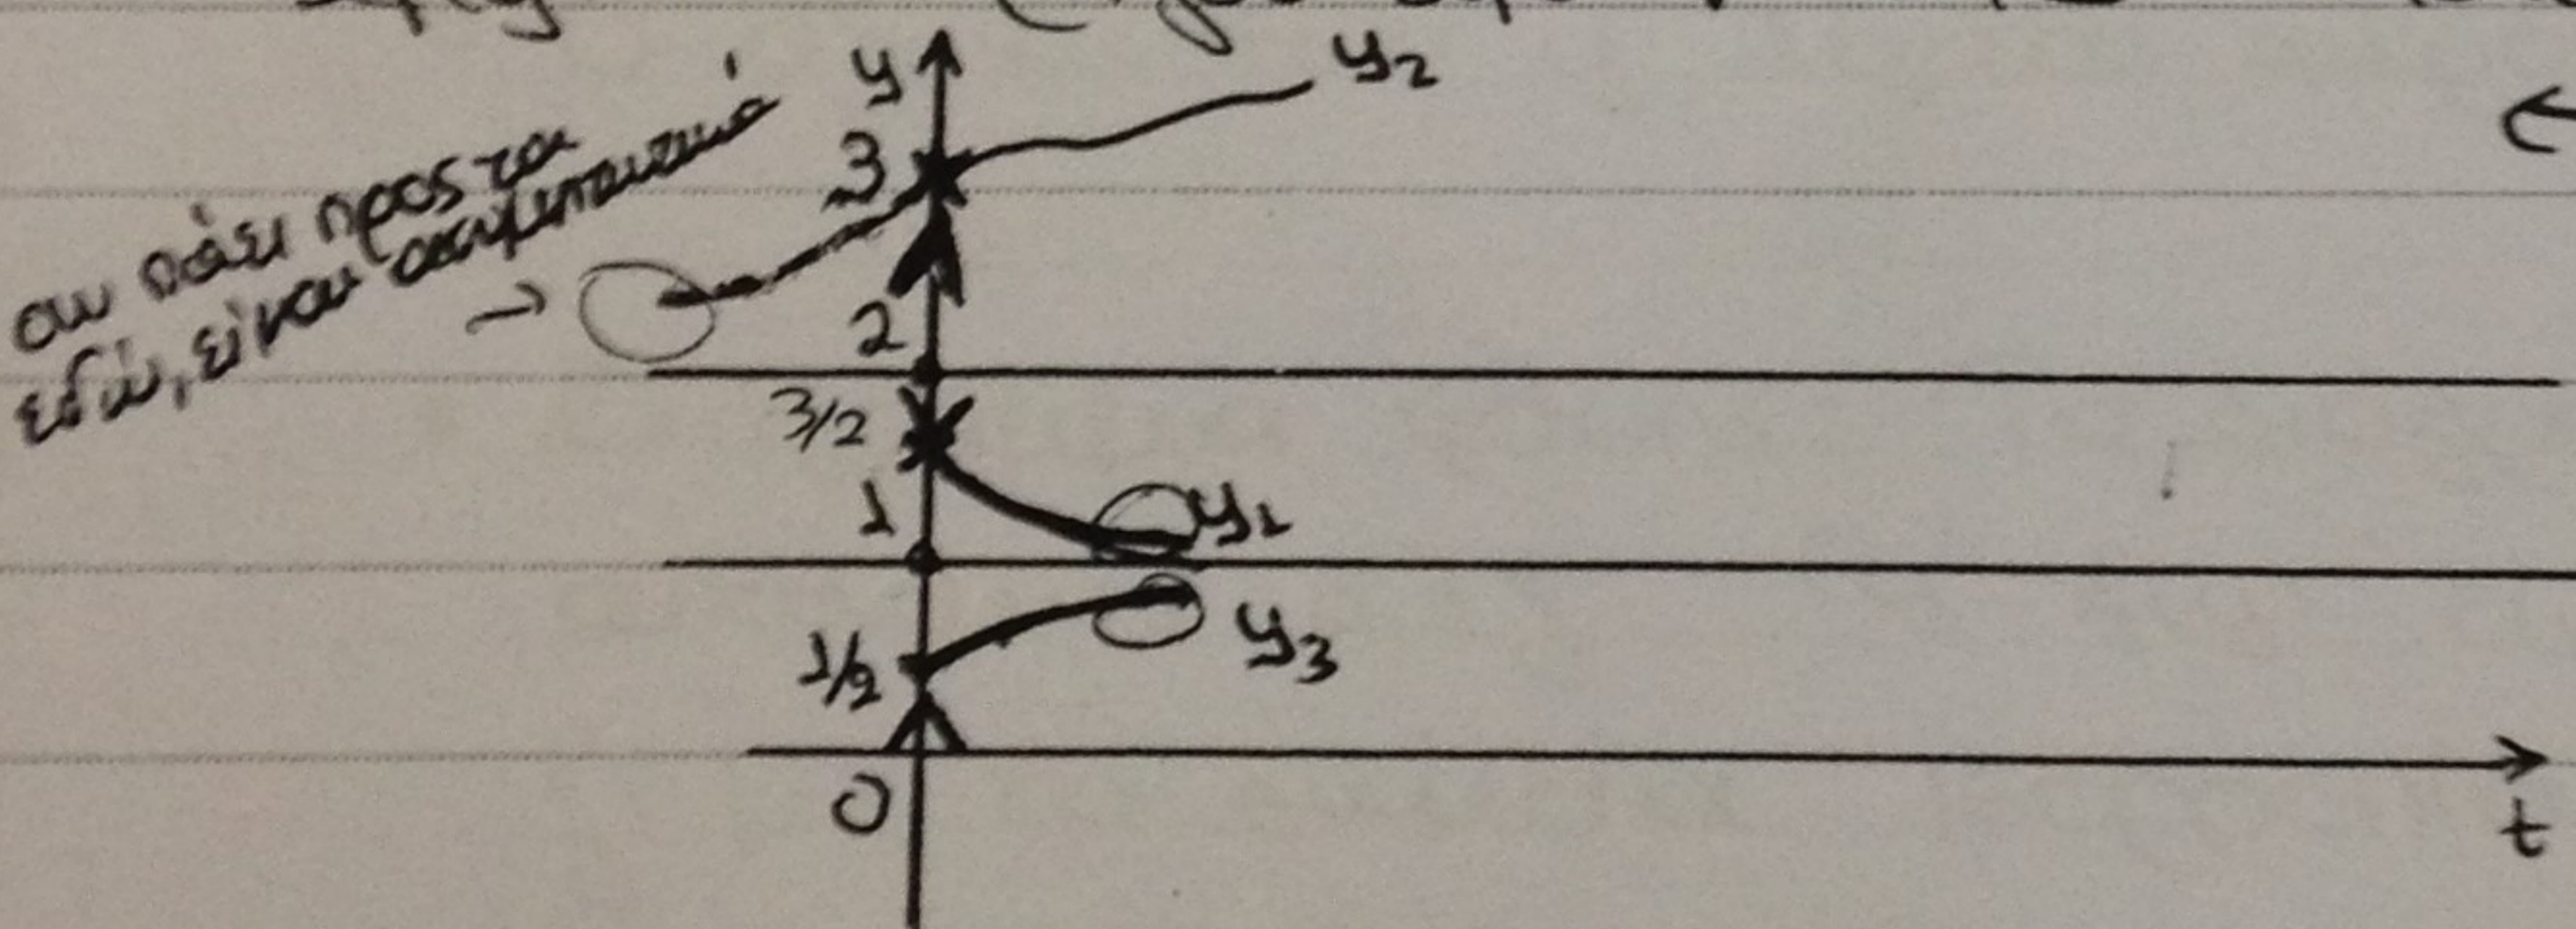 y
y₂
3
αν πάει προς τα
εδώ, είναι ασυμπτωτικά
→
2
3/2
1
y₁
1/2
y₃
0
t